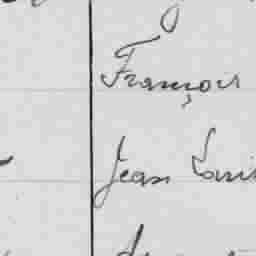 François
Jean Louis